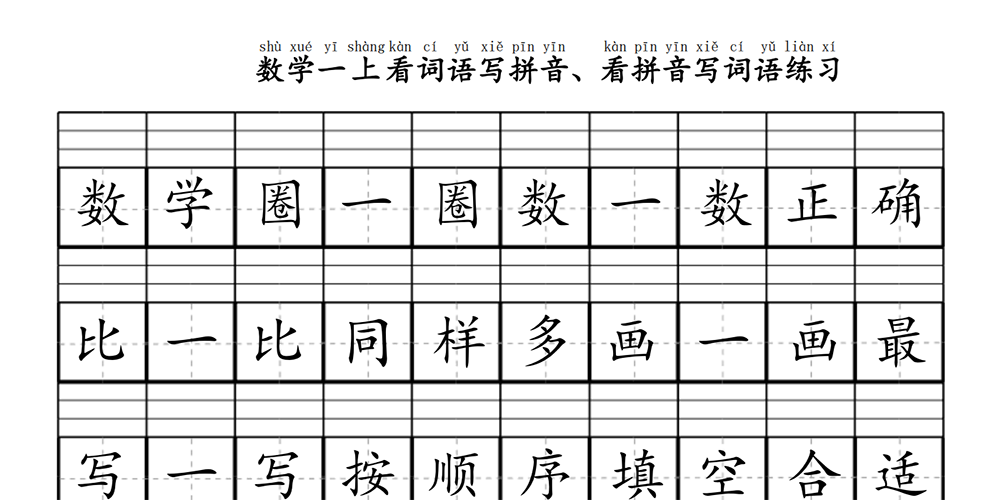 shù xué yī shàng kàn cí yǔ xiě pīn yīn kàn pīn yīn xiě cí yǔ liàn xí
数学一上看词语写拼音、看拼音写词语练习
数学圈一圈数一数正确
比一比同样多画一画最
写一写按顺序填空合适